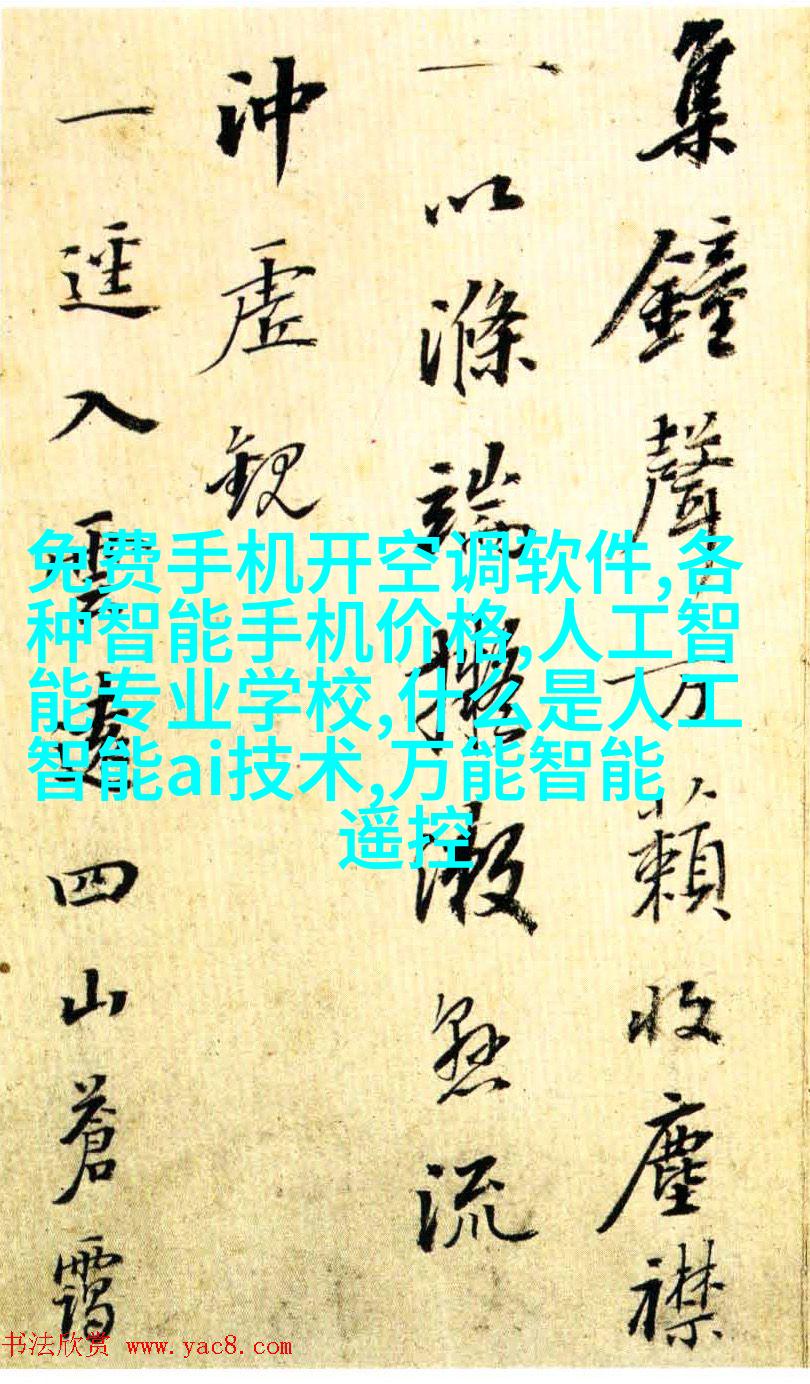 集鐘聲萬籟收塵襟
一以滌端擬激懸流
沖虛観
一逕入雲遠四山蒼靄
免费手机开空调软件,各
种智能手机价格,人工智
能专业学校,什么是人工
智能ai技术,万能智能
遥控
书法欣赏 www.yac8.com